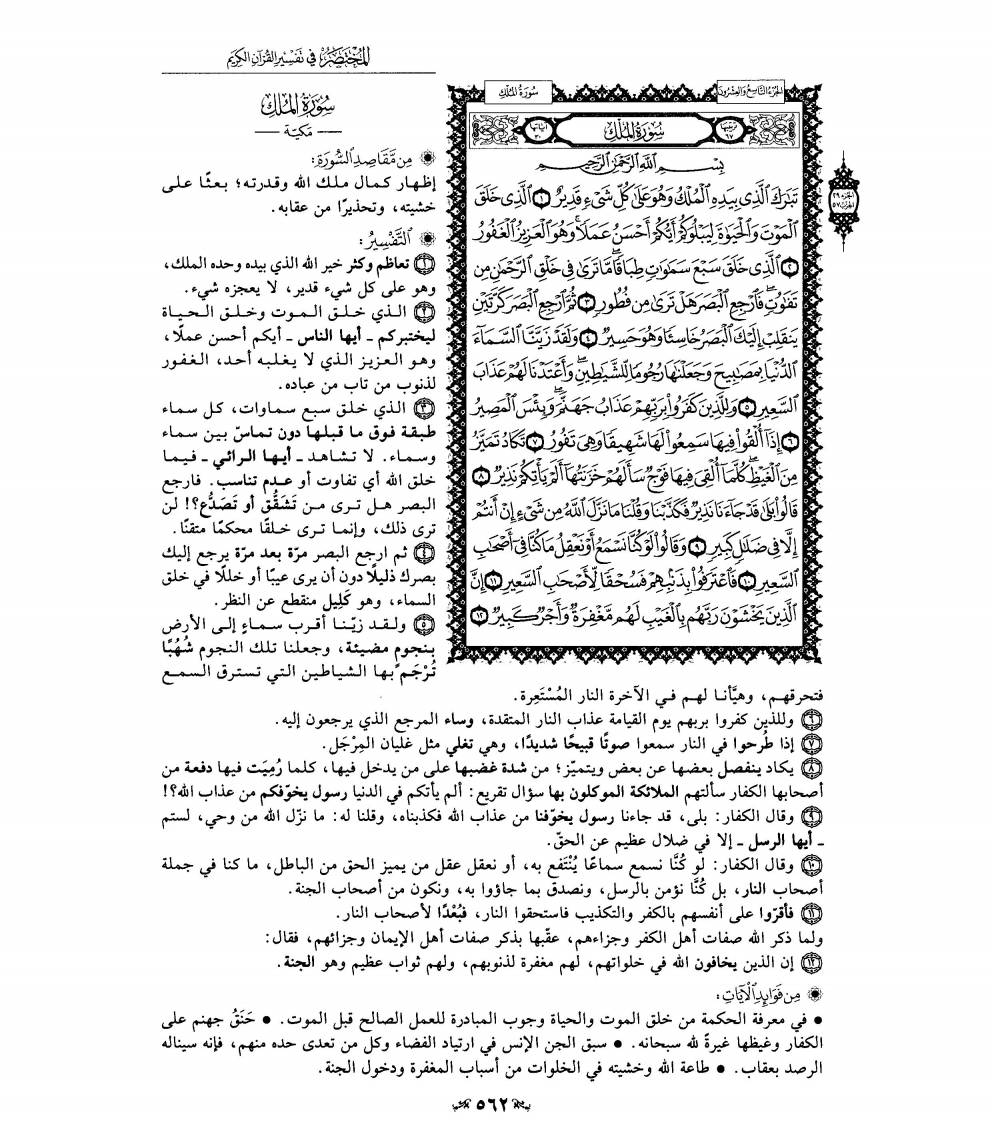 المختصر في تفسير القرآن الكريم
الجزء التاسع والعشرون
سورة الملك
ترتيبها ٦٧
سُورَةُ المُلْكِ
آياتها ٣٠
الجزء ٢٩
الحزب ٥٧
بِسْمِ ٱللَّهِ ٱلرَّحْمَٰنِ ٱلرَّحِيمِ
تَبَٰرَكَ ٱلَّذِى بِيَدِهِ ٱلْمُلْكُ وَهُوَ عَلَىٰ كُلِّ شَىْءٍ قَدِيرٌ ١ ٱلَّذِى خَلَقَ
ٱلْمَوْتَ وَٱلْحَيَوٰةَ لِيَبْلُوَكُمْ أَيُّكُمْ أَحْسَنُ عَمَلًا ۚ وَهُوَ ٱلْعَزِيزُ ٱلْغَفُورُ
٢ ٱلَّذِى خَلَقَ سَبْعَ سَمَٰوَٰتٍ طِبَاقًا ۖ مَّا تَرَىٰ فِى خَلْقِ ٱلرَّحْمَٰنِ مِن
تَفَٰوُتٍ ۖ فَٱرْجِعِ ٱلْبَصَرَ هَلْ تَرَىٰ مِن فُطُورٍ ٣ ثُمَّ ٱرْجِعِ ٱلْبَصَرَ كَرَّتَيْنِ
يَنقَلِبْ إِلَيْكَ ٱلْبَصَرُ خَاسِئًا وَهُوَ حَسِيرٌ ٤ وَلَقَدْ زَيَّنَّا ٱلسَّمَآءَ
ٱلدُّنْيَا بِمَصَٰبِيحَ وَجَعَلْنَٰهَا رُجُومًا لِّلشَّيَٰطِينِ ۖ وَأَعْتَدْنَا لَهُمْ عَذَابَ
ٱلسَّعِيرِ ٥ وَلِلَّذِينَ كَفَرُوا۟ بِرَبِّهِمْ عَذَابُ جَهَنَّمَ ۖ وَبِئْسَ ٱلْمَصِيرُ
٦ إِذَآ أُلْقُوا۟ فِيهَا سَمِعُوا۟ لَهَا شَهِيقًا وَهِىَ تَفُورُ ٧ تَكَادُ تَمَيَّزُ
مِنَ ٱلْغَيْظِ ۖ كُلَّمَآ أُلْقِىَ فِيهَا فَوْجٌ سَأَلَهُمْ خَزَنَتُهَآ أَلَمْ يَأْتِكُمْ نَذِيرٌ ٨
قَالُوا۟ بَلَىٰ قَدْ جَآءَنَا نَذِيرٌ فَكَذَّبْنَا وَقُلْنَا مَا نَزَّلَ ٱللَّهُ مِن شَىْءٍ إِنْ أَنتُمْ
إِلَّا فِى ضَلَٰلٍ كَبِيرٍ ٩ وَقَالُوا۟ لَوْ كُنَّا نَسْمَعُ أَوْ نَعْقِلُ مَا كُنَّا فِىٓ أَصْحَٰبِ
ٱلسَّعِيرِ ١٠ فَٱعْتَرَفُوا۟ بِذَنۢبِهِمْ فَسُحْقًا لِّأَصْحَٰبِ ٱلسَّعِيرِ ١١ إِنَّ
ٱلَّذِينَ يَخْشَوْنَ رَبَّهُم بِٱلْغَيْبِ لَهُم مَّغْفِرَةٌ وَأَجْرٌ كَبِيرٌ ١٢
سُورَةُ المُلْكِ
— مَكيّة —
مِن مَّقَاصِدِ السُّورَةِ:
إظهار كمال ملك الله وقدرته؛ بعثًا على
خشيته، وتحذيرًا من عقابه.
التَّفْسِيرُ:
١ تعاظم وكثر خير الله الذي بيده وحده الملك،
وهو على كل شيء قدير، لا يعجزه شيء.
٢ الذي خلق الموت وخلق الحياة
ليختبركم ـ أيها الناس ـ أيكم أحسن عملًا،
وهو العزيز الذي لا يغلبه أحد، الغفور
لذنوب من تاب من عباده.
٣ الذي خلق سبع سماوات، كل سماء
طبقة فوق ما قبلها دون تماسّ بين سماء
وسماء. لا تشاهد ـ أيها الرائي ـ فيما
خلق الله أي تفاوت أو عدم تناسب. فارجع
البصر هل ترى من تَشَقُّق أو تَصَدُّع؟! لن
ترى ذلك، وإنما ترى خلقًا محكمًا متقنًا.
٤ ثم ارجع البصر مرّة بعد مرّة يرجع إليك
بصرك ذليلًا دون أن يرى عيبًا أو خللًا في خلق
السماء، وهو كَلِيل منقطع عن النظر.
٥ ولقد زيّنا أقرب سماءٍ إلى الأرض
بنجوم مضيئة، وجعلنا تلك النجوم شُهُبًا
تُرْجَم بها الشياطين التي تسترق السمع
فتحرقهم، وهيَّأنا لهم في الآخرة النار المُسْتَعِرة.
٦ وللذين كفروا بربهم يوم القيامة عذاب النار المتقدة، وساء المرجع الذي يرجعون إليه.
٧ إذا طُرحوا في النار سمعوا صوتًا قبيحًا شديدًا، وهي تغلي مثل غليان المِرْجَل.
٨ يكاد ينفصل بعضها عن بعض ويتميّز؛ من شدة غضبها على من يدخل فيها، كلما رُمِيَت فيها دفعة من
أصحابها الكفار سألتهم الملائكة الموكلون بها سؤال تقريع: ألم يأتكم في الدنيا رسول يخوّفكم من عذاب الله؟!
٩ وقال الكفار: بلى، قد جاءنا رسول يخوّفنا من عذاب الله فكذبناه، وقلنا له: ما نزّل الله من وحي، لستم
ـ أيها الرسل ـ إلا في ضلال عظيم عن الحقّ.
١٠ وقال الكفار: لو كُنَّا نسمع سماعًا يُنْتَفع به، أو نعقل عقل من يميز الحق من الباطل، ما كنا في جملة
أصحاب النار، بل كُنَّا نؤمن بالرسل، ونصدق بما جاؤوا به، ونكون من أصحاب الجنة.
١١ فأقرّوا على أنفسهم بالكفر والتكذيب فاستحقوا النار، فبُعْدًا لأصحاب النار.
ولما ذكر الله صفات أهل الكفر وجزاءهم، عقّبها بذكر صفات أهل الإيمان وجزائهم، فقال:
١٢ إن الذين يخافون الله في خلواتهم، لهم مغفرة لذنوبهم، ولهم ثواب عظيم وهو الجنة.
مِن فَوَائِدِ الآيَاتِ:
● في معرفة الحكمة من خلق الموت والحياة وجوب المبادرة للعمل الصالح قبل الموت. ● حَنَقُ جهنم على
الكفار وغيظها غيرةً لله سبحانه. ● سبق الجن الإنس في ارتياد الفضاء وكل من تعدى حده منهم، فإنه سيناله
الرصد بعقاب. ● طاعة الله وخشيته في الخلوات من أسباب المغفرة ودخول الجنة.
٥٦٢